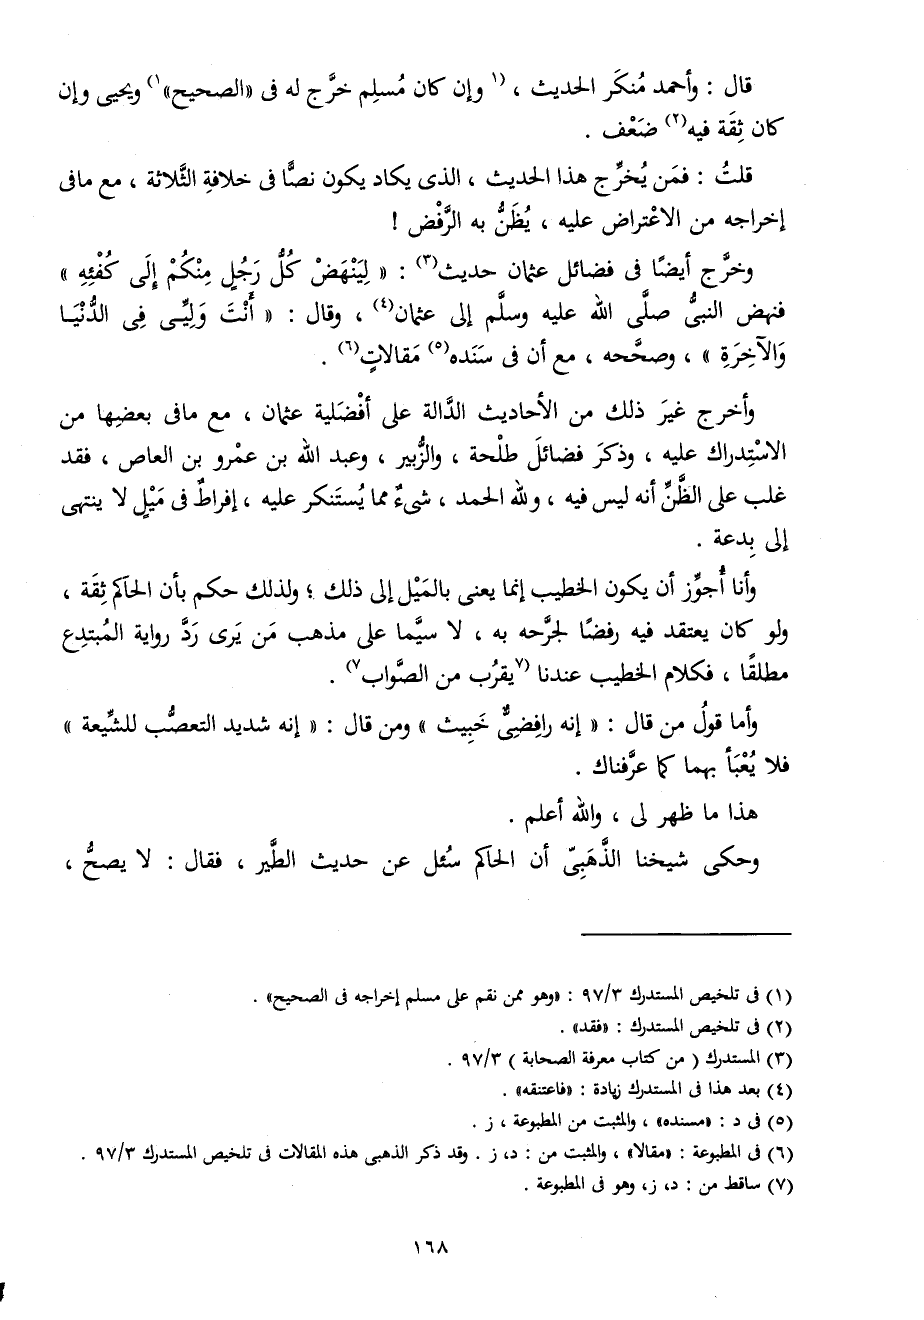 قال : وأحمد مُنكَر الحديث ، (١ وإن كان مُسلِم خرَّج له فى «الصحيح»١) ويحيى وإن
كان ثِقَة فيه(٢) ضَعْف .
قلتُ : فمَن يُخرِّج هذا الحديث ، الذى يكاد يكون نصًّا فى خلافةِ الثَّلاثة ، مع مافى
إخراجه من الاعْتراض عليه ، يُظَنُّ به الرَّفْض !
وخرَّج أيضًا فى فضائل عثمان حديث(٣) : « لِيَنْهَضْ كُلُّ رَجُلٍ مِنْكُمْ إِلَى كُفْئِهِ »
فنهض النبىُّ صلَّى الله عليه وسلَّم إلى عثمان(٤) ، وقال : « أَنْتَ وَلِيِّـى فِى الدُّنْيَـا
وَالْآخِرَةِ » ، وصحَّحه ، مع أن فى سَنَده(٥) مَقالاتٍ(٦) .
وأخرج غيرَ ذلك من الأحاديث الدَّالة على أفْضَلية عثمان ، مع مافى بعضِها من
الاسْتِدراك عليه ، وذكرَ فضائلَ طلْحة ، والزُّبير ، وعبد الله بن عمْرو بن العاص ، فقد
غلب على الظَّنِّ أنه ليس فيه ، ولله الحمد ، شىءٌ مما يُستَنكر عليه ، إفراطٌ فى مَيْلٍ لا ينتهى
إلى بِدعة .
وأنا أُجوِّز أن يكون الخطيب إنما يعنى بالمَيْل إلى ذلك ؛ ولذلك حكم بأن الحاكم ثِقَة ،
ولو كان يعتقد فيه رفضًا لجرَّحه به ، لا سيَّما على مذهب مَن يَرى رَدَّ رواية المُبتدِع
مطلقًا ، فكلام الخطيب عندنا (٧يقرُب من الصَّواب٧) .
وأما قولُ من قال : « إنه رافِضىٌّ خَبِيث » ومن قال : « إنه شديد التعصُّب للشِّيعة »
فلا يُعْبَأ بهما كما عرَّفناك .
هذا ما ظهر لى ، والله أعلم .
وحكى شيخنا الذَّهَبِىّ أن الحاكم سُئل عن حديث الطَّير ، فقال : لا يصحُّ ،
(١) فى تلخيص المستدرك ٩٧/٣ : «وهو ممن نقم على مسلم إخراجه فى الصحيح» .
(٢) فى تلخيص المستدرك : «فقد» .
(٣) المستدرك ( من كتاب معرفة الصحابة ) ٩٧/٣ .
(٤) بعد هذا فى المستدرك زيادة : «فاعتنقه» .
(٥) فى د : «مسنده» ، والمثبت من المطبوعة ، ز .
(٦) فى المطبوعة : «مقالا» ، والمثبت من : د، ز . وقد ذكر الذهبى هذه المقالات فى تلخيص المستدرك ٩٧/٣ .
(٧) ساقط من : د، ز، وهو فى المطبوعة .
١٦٨